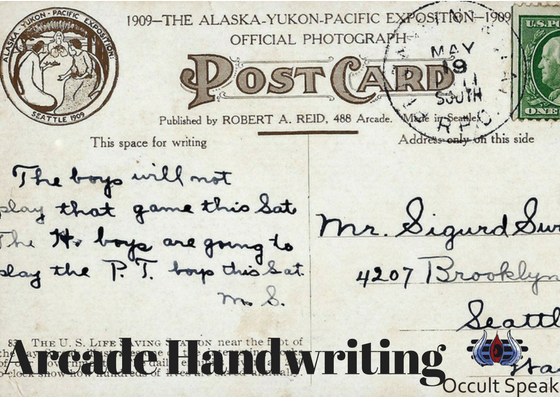 1909—THE ALASKA-YUKON-PACIFIC EXPOSITION—1909
OFFICIAL PHOTOGRAPH
ALASKA-YUKON-PACIFIC EXPOSITION
SEATTLE 1909
POST CARD
MAY
19
11
SOUTH
R.P.O.
U.S. PO
ONE
Published by ROBERT A. REID, 488 Arcade. Made in Seattle.
This space for writing
Address only on this side
The boys will not
play that game this Sat
The H. boys are going to
play the P. T. boys this Sat.
M. S.
Mr. Sigurd
4207 Brooklyn
Seattl
THE U. S. LIFE SAVING STATION near the foot of
Arcade Handwriting
Occult Speak